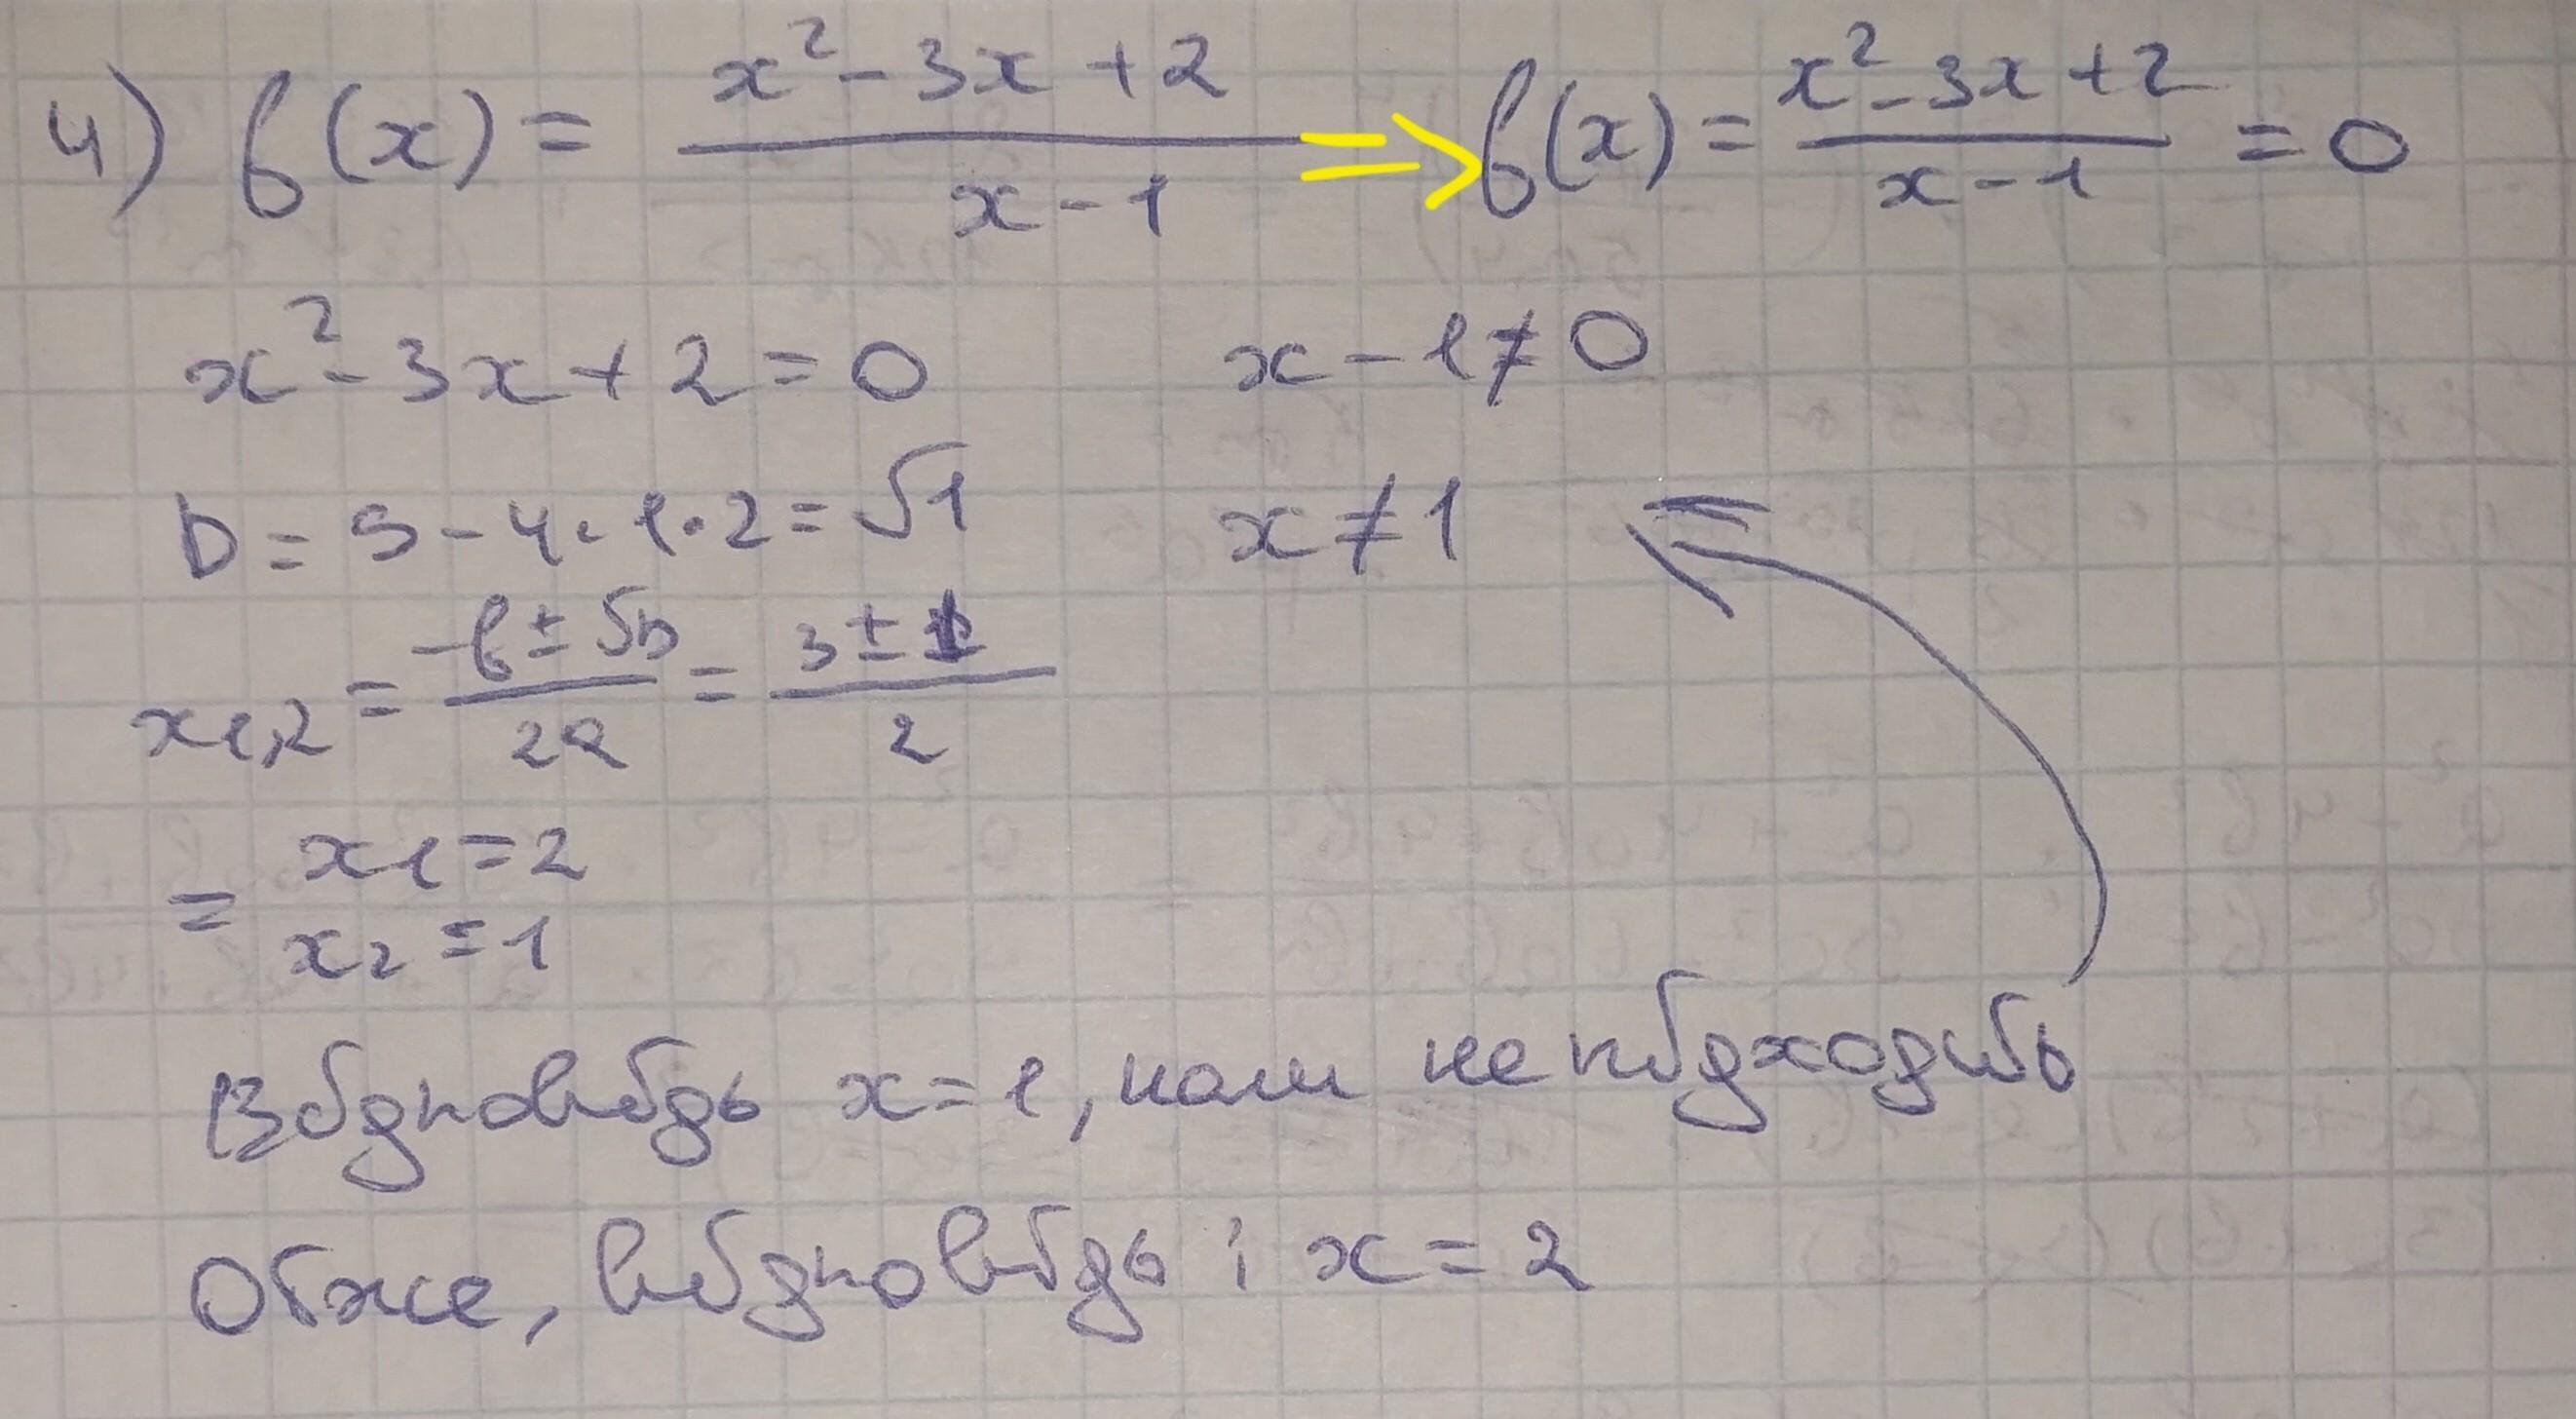 4) f(x) = (x² - 3x + 2)/(x - 1) ⇒ f(x) = (x² - 3x + 2)/(x - 1) = 0
x² - 3x + 2 = 0 x - 1 ≠ 0
D = 9 - 4 · 1 · 2 = √1 x ≠ 1
x1,2 = (-b ± √D)/(2a) = (3 ± 1)/2
= x1 = 2
x2 = 1
Відповідь x = 1, нам не підходить
Отже, відповідь : x = 2